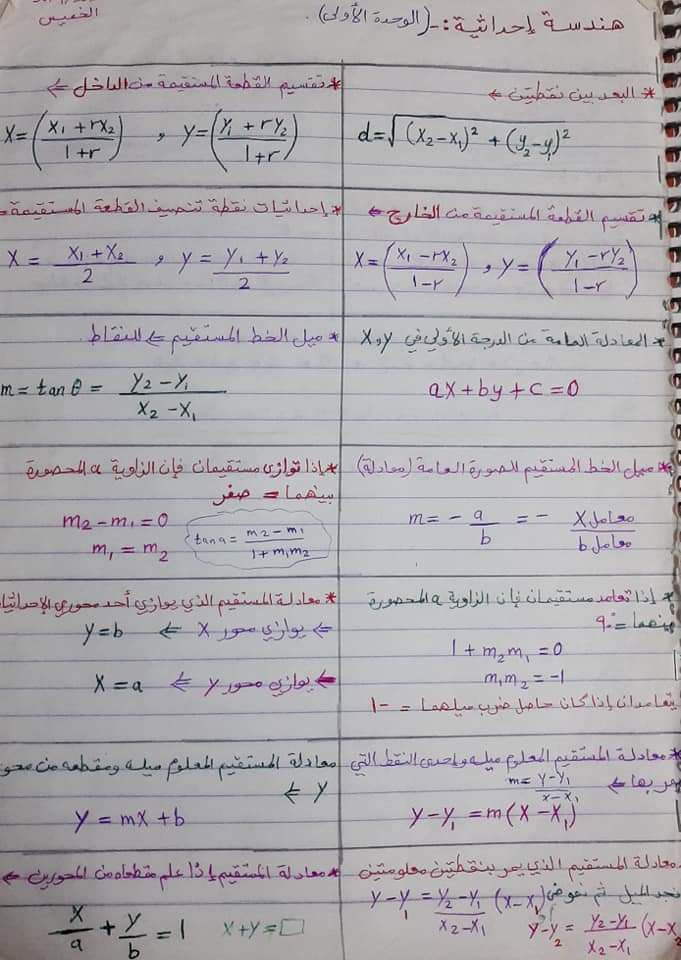 الخميس
هندسة إحداثية :- (الوحدة الأولى).
* البعد بين نقطتين ⇐
d = √(x₂ - x₁)² + (y₂ - y₁)²
* تقسيم القطعة المستقيمة من الداخل ⇐
X = (x₁ + rx₂ / 1+r) , y = (y₁ + ry₂ / 1+r)
* تقسيم القطعة المستقيمة من الخارج ⇐
X = (x₁ - rx₂ / 1-r) , y = (y₁ - ry₂ / 1-r)
* إحداثيات نقطة تنصيف القطعة المستقيمة
X = x₁ + x₂ / 2 , y = y₁ + y₂ / 2
* المعادلة العامة من الدرجة الأولى في x و y
ax + by + c = 0
* ميل الخط المستقيم ⇐ للنقاط.
m = tan θ = y₂ - y₁ / x₂ - x₁
* ميل الخط المستقيم للصورة العامة (معادلة)
m = - a / b = - معامل x / معامل b
* إذا توازى مستقيمان فإن الزاوية a المحصورة
بينهما = صفر
m₂ - m₁ = 0
m₁ = m₂
tan a = m₂ - m₁ / 1 + m₁m₂
* إذا تعامد مستقيمان فإن الزاوية a المحصورة
بينهما = 90°
1 + m₂m₁ = 0
m₁m₂ = -1
يتعامدان إذا كان حاصل ضرب ميلهما = -1
* معادلة المستقيم الذي يوازي أحد محوري الإحداثيات
⇐ يوازي محور x ⇐ y = b
⇐ يوازي محور y ⇐ x = a
* معادلة المستقيم المعلوم ميله وإحدى النقط التي
يمر بها ⇐ m = y - y₁ / x - x₁
y - y₁ = m(x - x₁)
معادلة المستقيم المعلوم ميله ومقطعه من
y ⇐
y = mx + b
معادلة المستقيم الذي يمر بنقطتين معلومتين
نجد الميل ثم نعوض y - y₁ = y₂ - y₁ / x₂ - x₁ (x - x₁)
y - y₂ = y₂ - y₁ / x₂ - x₁ (x - x₂
* معادلة المستقيم إذا علم مقطعاه من المحورين ⇐
x / a + y / b = 1
x + y = □